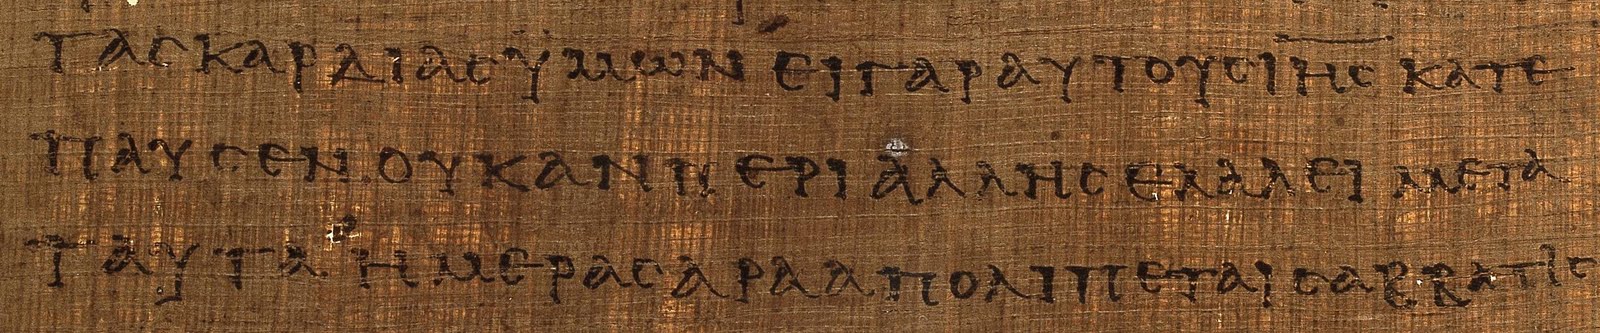 ΤΑϹΚΑΡΔΙΑϹΫΜΩΝ ΕΙΓΑΡΑΥΤΟΥϹΙ̅Η̅Ϲ̅ ΚΑΤΕ
ΠΑΥϹΕΝ ΟΥΚΑΝ ΠΕΡΙΑΛΛΗϹ ΕΛΑΛΕΙ ΜΕΤΑ
ΤΑΥΤΑ ΗΜΕΡΑϹ ΑΡΑΑΠΟΛΙΠΕΤΑΙ ϹΑΒΒΑΤΙϹ